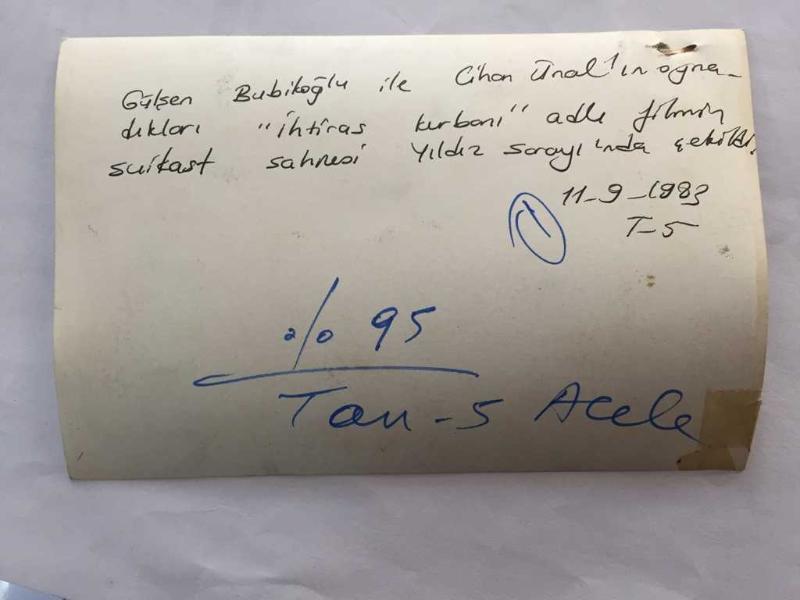 Gülşen Bubikoğlu ile Cihan Ünal'ın oyna-
dıkları "ihtiras kurbanı" adlı filmin
suikast sahnesi Yıldız Sarayı'nda çekildi.
11-9-1983
T-5
1
% 95
Tan-5 Acele